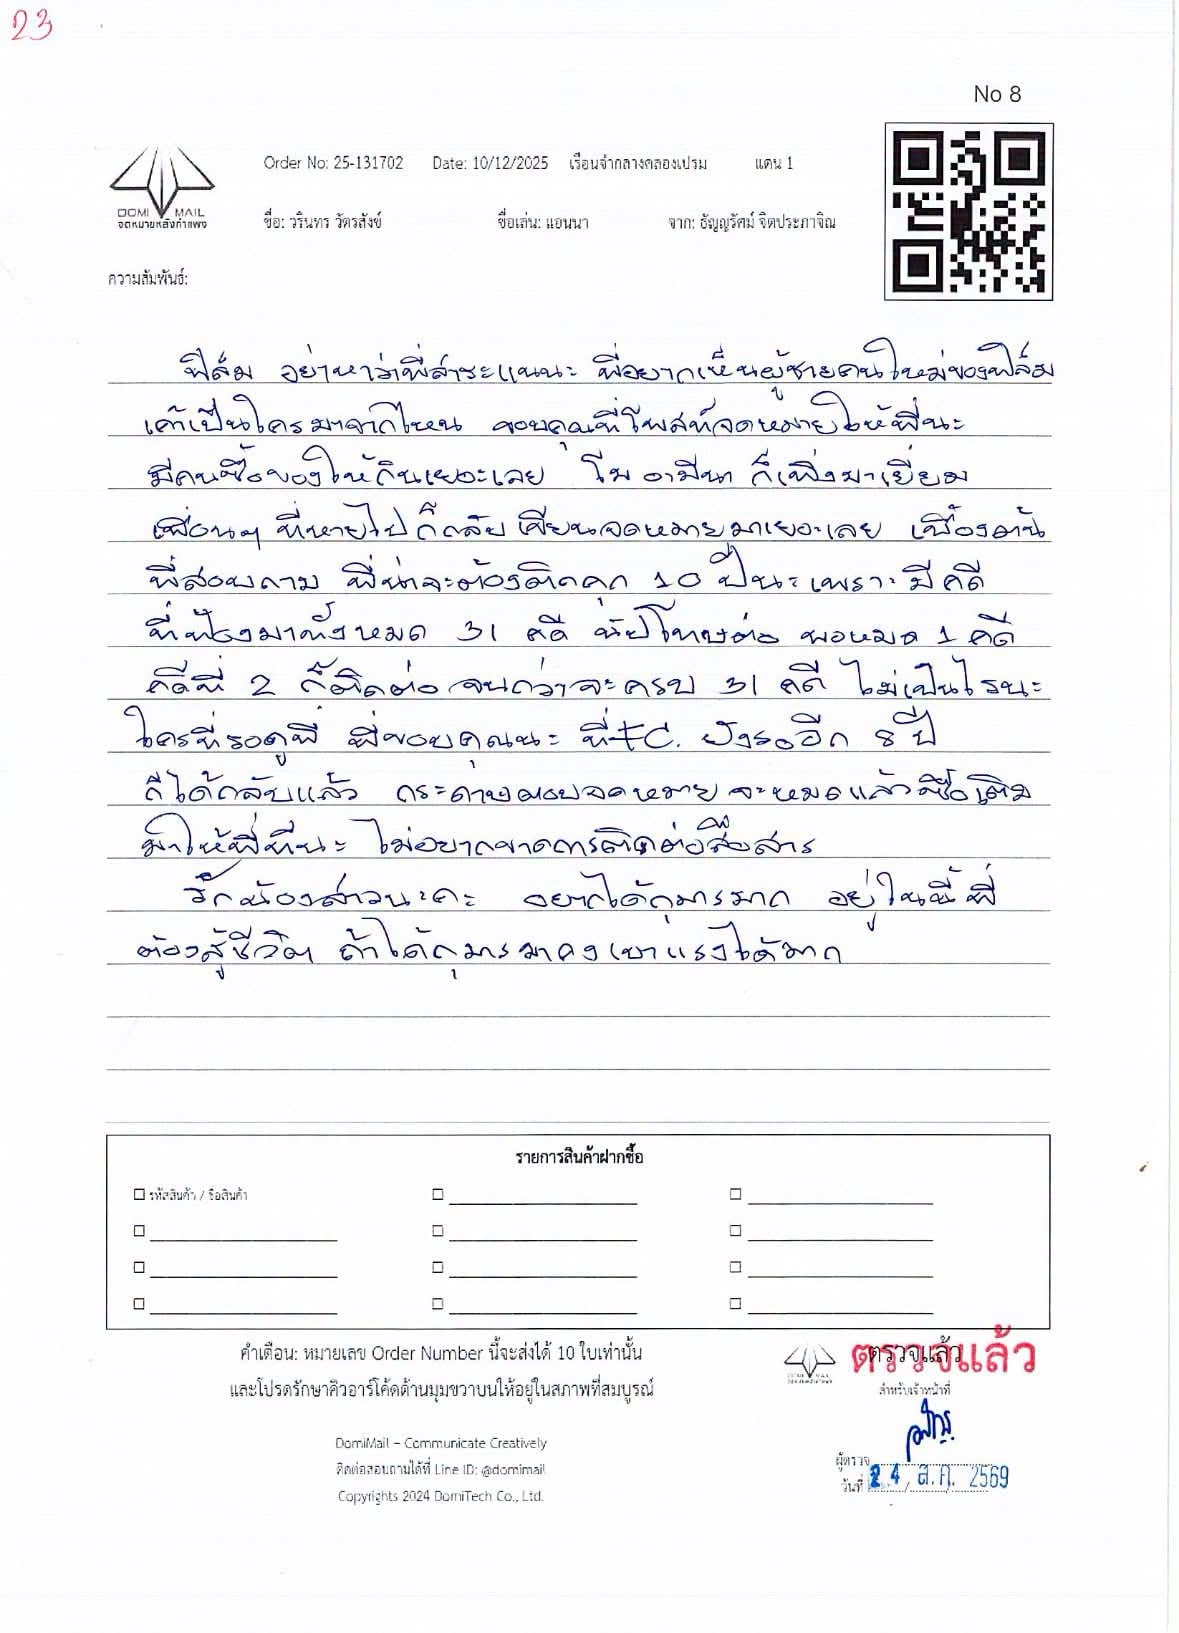 23
No 8
Order No: 25-131702 Date: 10/12/2025 เรือนจำกลางคลองเปรม แดน 1
DOMI MAIL
จดหมายหลังกำแพง
ชื่อ: วรินทร วัตรสังข์ ชื่อเล่น: แอนนา จาก: ธัญญรัศม์ จิตประภาจิณ
ความสัมพันธ์:
ฟิล์ม อย่าหาว่าพี่สาระแนนะ พี่อยากเห็นผู้ชายคนใหม่ของฟิล์ม
เค้าเป็นใครมาจากไหน ขอบคุณที่โพสท์จดหมายให้พี่นะ
มีคนซื้อของให้กินเยอะเลย โบ อามีนา ก็เพิ่งมาเยี่ยม
เพื่อนๆ ที่หายไปก็กลับเขียนจดหมายมาเยอะเลย เบื้องต้น
พี่สอบถาม พี่น่าจะต้องติดคุก 10 ปีนะเพราะมีคดี
ที่ฟ้องมาทั้งหมด 31 คดี นับโทษต่อ พอหมด 1 คดี
คดีที่ 2 ก็ติดต่อจนกว่าจะครบ 31 คดี ไม่เป็นไรนะ
ใครที่รอดูพี่ พี่ขอบคุณนะ ที่FC. ยังรออีก 8 ปี
ก็ได้กลับแล้ว กระดาษตอบจดหมายจะหมดแล้วซื้อเติม
มาให้พี่ทีนะ ไม่อยากขาดการติดต่อสื่อสาร
รักน้องสาวนะคะ อยากได้กุมารมาก อยู่ในนี้พี่
ต้องสู้ชีวิต ถ้าได้กุมารมาคงเบาแรงได้มาก
รายการสินค้าฝากซื้อ
รหัสสินค้า / ชื่อสินค้า
คำเตือน: หมายเลข Order Number นี้จะส่งได้ 10 ใบเท่านั้น
และโปรดรักษาคิวอาร์โค้ดด้านมุมขวาบนให้อยู่ในสภาพที่สมบูรณ์
DomiMail – Communicate Creatively
ติดต่อสอบถามได้ที่ Line ID: @domimail
Copyrights 2024 DomiTech Co., Ltd.
ตรวจแล้ว
ตรวจแล้ว
สำหรับเจ้าหน้าที่
ผู้ตรวจ
วันที่ 24 ส.ค. 2569